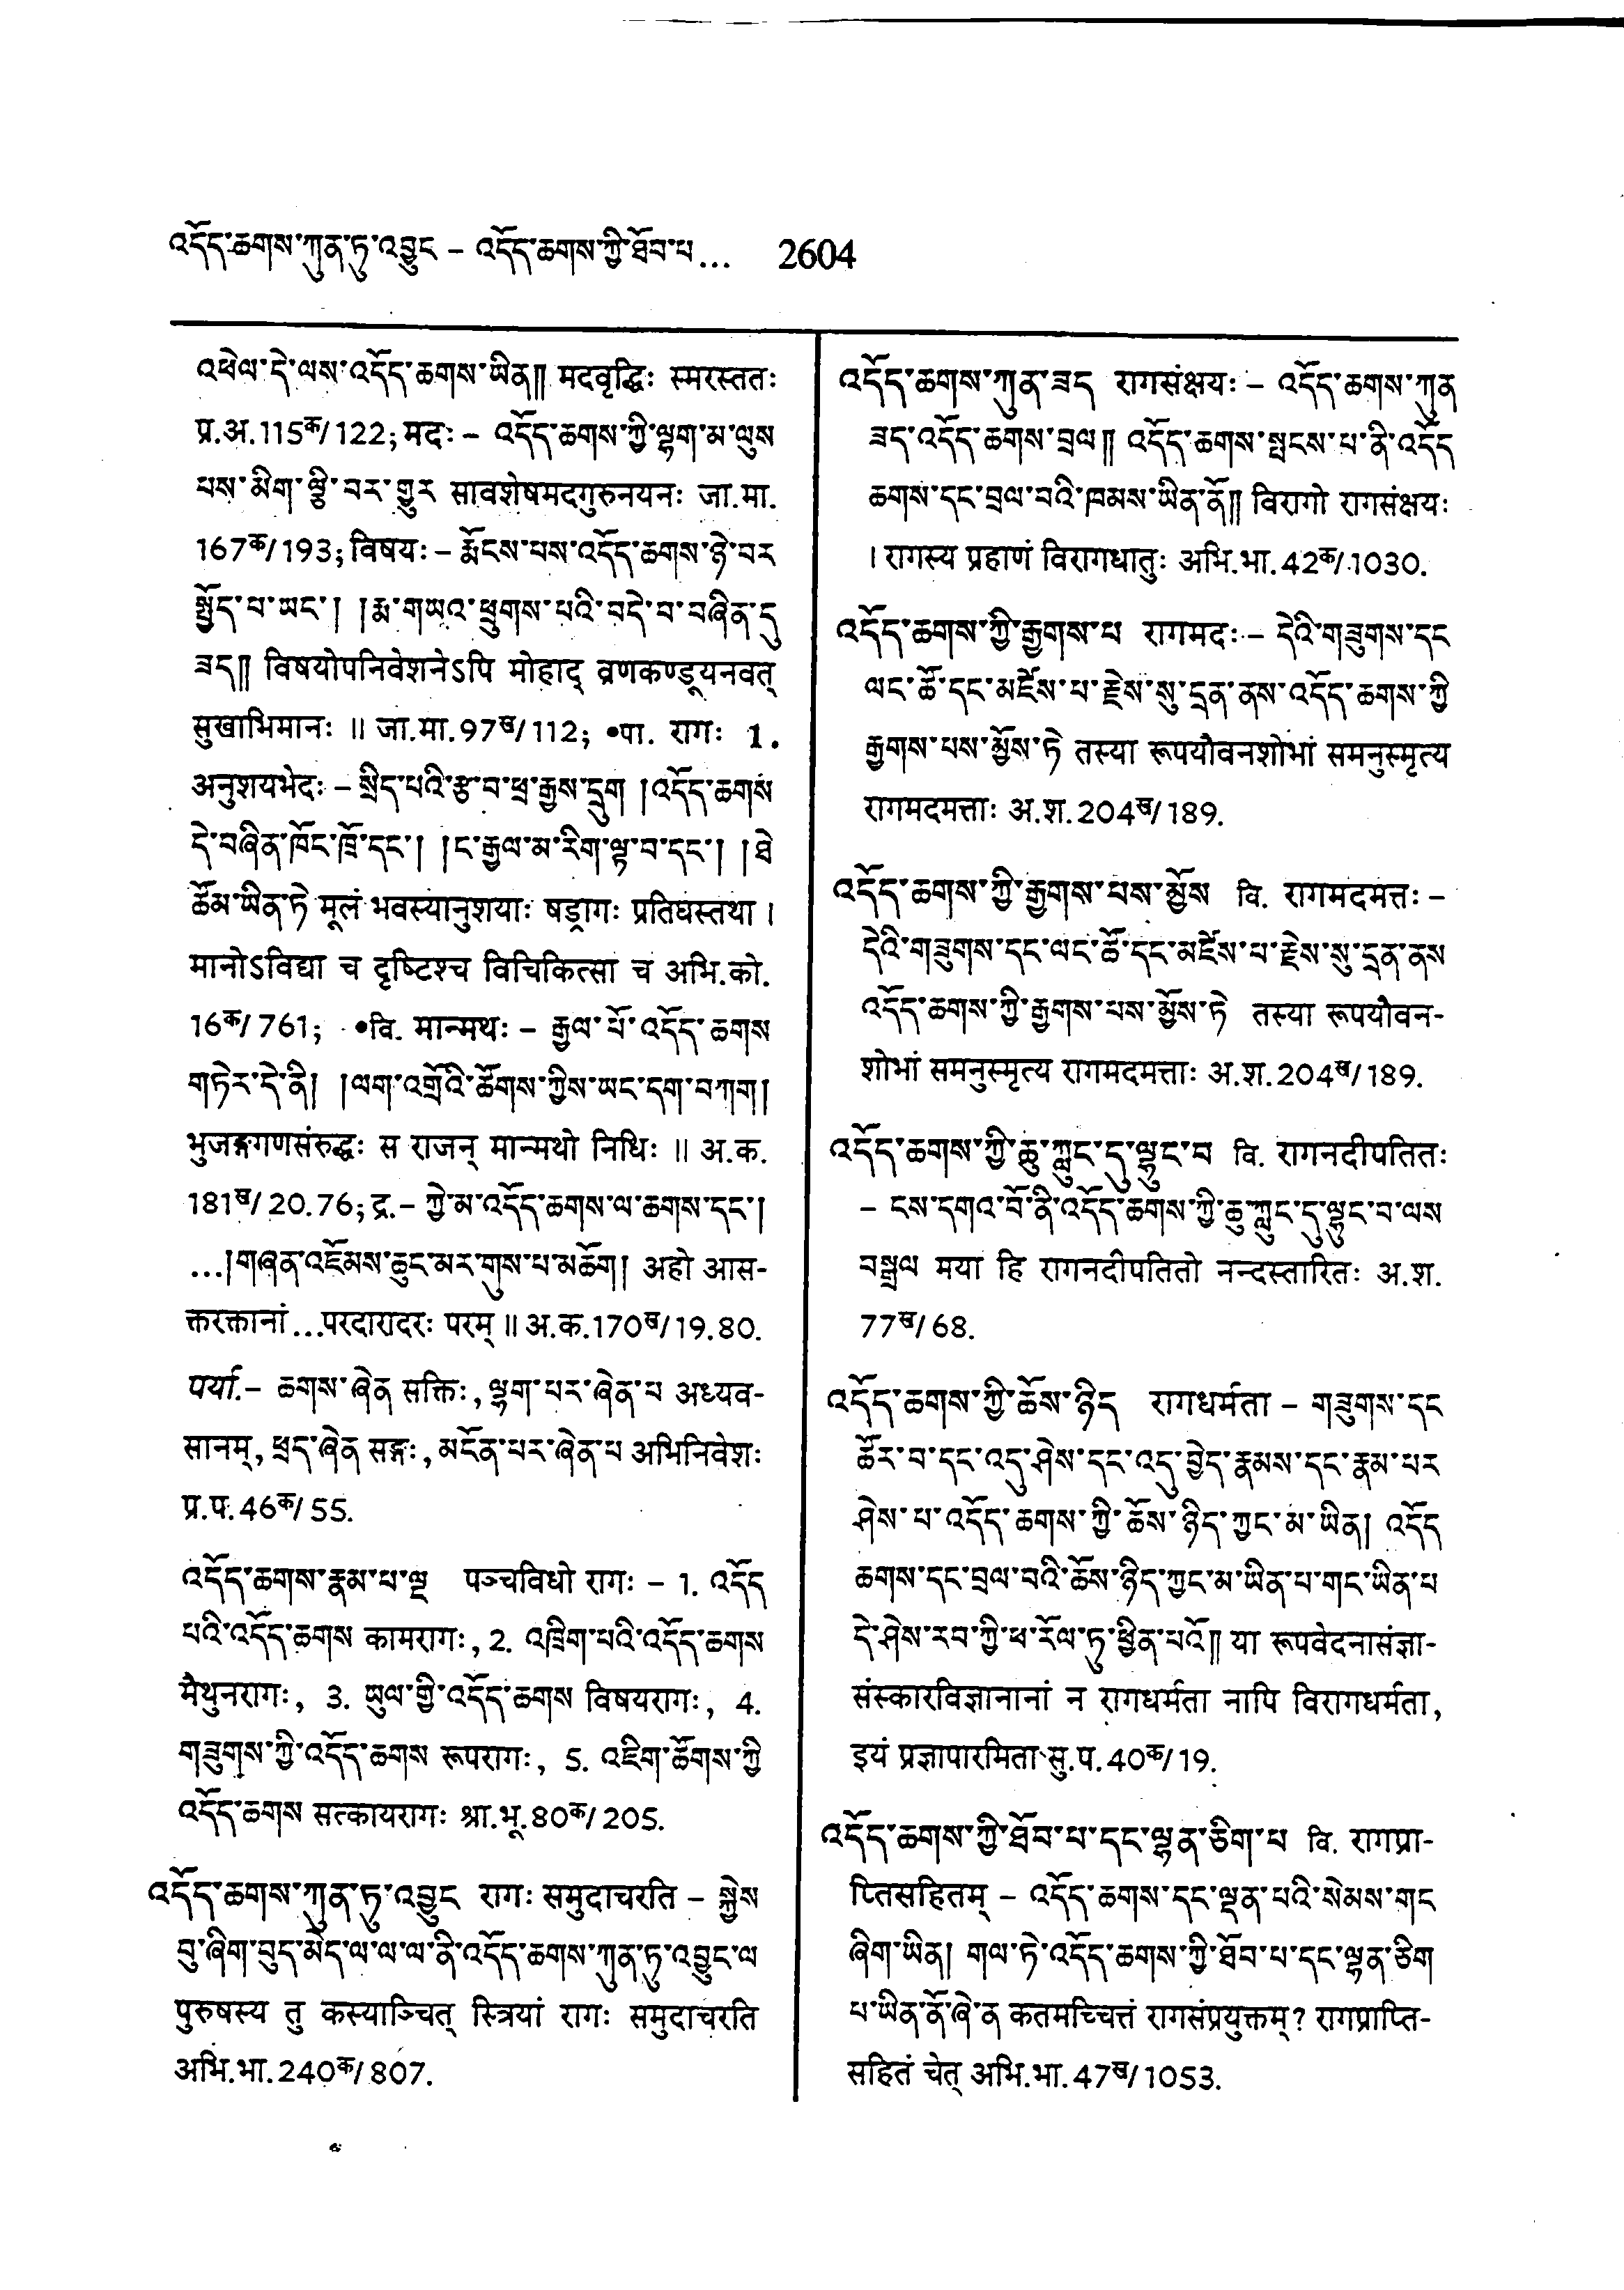 འདོད་ཆགས་ཀུན་ཏུ་འབྱུང – འདོད་ཆགས་ཀྱི་ཐོབ་པ... 2604
འཕེལ་དེ་ལས་འདོད་ཆགས་ཡིན།། मदवृद्धिः स्मरस्ततः
प्र.अ.115क/122; मदः – འདོད་ཆགས་ཀྱི་ལྷག་མ་ལུས
པས་མིག་ལྕི་བར་གྱུར सावशेषमदगुरुनयनः जा.मा.
167क/193; विषयः – རྨོངས་པས་འདོད་ཆགས་ཉེ་བར
སྤྱོད་པ་ཡང་། །རྨ་གཡའ་ཕྲུགས་པའི་བདེ་བ་བཞིན་དུ
ཟད།། विषयोपनिवेशनेऽपि मोहाद् व्रणकण्डूयनवत्
सुखाभिमानः ॥ जा.मा.97ख/112; •पा. रागः 1.
अनुशयभेदः – སྲིད་པའི་རྩ་བ་ཕྲ་རྒྱས་དྲུག །འདོད་ཆགས
དེ་བཞིན་ཁོང་ཁྲོ་དང་། །ང་རྒྱལ་མ་རིག་ལྟ་བ་དང་། །ཐེ
ཚོམ་ཡིན་ཏེ मूलं भवस्यानुशयाः षड्रागः प्रतिघस्तथा ।
मानोऽविद्या च दृष्टिश्च विचिकित्सा च अभि.को.
16क/761; •वि. मान्मथः – རྒྱལ་པོ་འདོད་ཆགས
གཏེར་དེ་ནི། །ལག་འགྲོའི་ཚོགས་ཀྱིས་ཡང་དག་བཀག།
भुजङ्गगणसंरुद्धः स राजन् मान्मथो निधिः ॥ अ.क.
181ख/20.76; द्र.– ཀྱེ་མ་འདོད་ཆགས་ལ་ཆགས་དང་།
...།གཞན་འཇོམས་ཆུང་མར་གུས་པ་མཆོག། अहो आस-
क्तरक्तानां...परदारादरः परम् ॥ अ.क.170ख/19.80.
पर्या.– ཆགས་ཞེན सक्तिः, ལྷག་པར་ཞེན་པ अध्यव-
सानम्, ཕྲད་ཞེན सङ्गः, མངོན་པར་ཞེན་པ अभिनिवेशः
प्र.प.46क/55.
འདོད་ཆགས་རྣམ་པ་ལྔ पञ्चविधो रागः – 1. འདོད
པའི་འདོད་ཆགས कामरागः, 2. འཁྲིག་པའི་འདོད་ཆགས
मैथुनरागः, 3. ཡུལ་གྱི་འདོད་ཆགས विषयरागः, 4.
གཟུགས་ཀྱི་འདོད་ཆགས रूपरागः, 5. འཇིག་ཚོགས་ཀྱི
འདོད་ཆགས सत्कायरागः श्रा.भू.80क/205.
འདོད་ཆགས་ཀུན་ཏུ་འབྱུང रागः समुदाचरति – སྐྱེས
བུ་ཞིག་བུད་མེད་ལ་ལ་ལ་ནི་འདོད་ཆགས་ཀུན་ཏུ་འབྱུང་ལ
पुरुषस्य तु कस्याञ्चित् स्त्रियां रागः समुदाचरति
अभि.भा.240क/807.
འདོད་ཆགས་ཀུན་ཟད रागसंक्षयः – འདོད་ཆགས་ཀུན
ཟད་འདོད་ཆགས་བྲལ།། འདོད་ཆགས་སྤངས་པ་ནི་འདོད
ཆགས་དང་བྲལ་བའི་ཁམས་ཡིན་ནོ།། विरागो रागसंक्षयः
। रागस्य प्रहाणं विरागधातुः अभि.भा.42क/1030.
འདོད་ཆགས་ཀྱི་རྒྱགས་པ रागमदः – དེའི་གཟུགས་དང
ལང་ཚོ་དང་མཛེས་པ་རྗེས་སུ་དྲན་ནས་འདོད་ཆགས་ཀྱི
རྒྱགས་པས་མྱོས་ཏེ तस्या रूपयौवनशोभां समनुस्मृत्य
रागमदमत्ताः अ.श.204ख/189.
འདོད་ཆགས་ཀྱི་རྒྱགས་པས་མྱོས वि. रागमदमत्तः –
དེའི་གཟུགས་དང་ལང་ཚོ་དང་མཛེས་པ་རྗེས་སུ་དྲན་ནས
འདོད་ཆགས་ཀྱི་རྒྱགས་པས་མྱོས་ཏེ तस्या रूपयौवन-
शोभां समनुस्मृत्य रागमदमत्ताः अ.श.204ख/189.
འདོད་ཆགས་ཀྱི་ཆུ་ཀླུང་དུ་ལྷུང་བ वि. रागनदीपतितः
– ངས་དགའ་བོ་ནི་འདོད་ཆགས་ཀྱི་ཆུ་ཀླུང་དུ་ལྷུང་བ་ལས
བསྒྲལ मया हि रागनदीपतितो नन्दस्तारितः अ.श.
77ख/68.
འདོད་ཆགས་ཀྱི་ཆོས་ཉིད रागधर्मता – གཟུགས་དང
ཚོར་བ་དང་འདུ་ཤེས་དང་འདུ་བྱེད་རྣམས་དང་རྣམ་པར
ཤེས་པ་འདོད་ཆགས་ཀྱི་ཆོས་ཉིད་ཀྱང་མ་ཡིན། འདོད
ཆགས་དང་བྲལ་བའི་ཆོས་ཉིད་ཀྱང་མ་ཡིན་པ་གང་ཡིན་པ
དེ་ཤེས་རབ་ཀྱི་ཕ་རོལ་ཏུ་ཕྱིན་པའོ།། या रूपवेदनासंज्ञा-
संस्कारविज्ञानानां न रागधर्मता नापि विरागधर्मता,
इयं प्रज्ञापारमिता सु.प.40क/19.
འདོད་ཆགས་ཀྱི་ཐོབ་པ་དང་ལྷན་ཅིག་པ वि. रागप्रा-
प्तिसहितम् – འདོད་ཆགས་དང་ལྡན་པའི་སེམས་གང
ཞིག་ཡིན། གལ་ཏེ་འདོད་ཆགས་ཀྱི་ཐོབ་པ་དང་ལྷན་ཅིག
པ་ཡིན་ནོ་ཞེ་ན कतमच्चित्तं रागसंप्रयुक्तम्? रागप्राप्ति-
सहितं चेत् अभि.भा.47ख/1053.